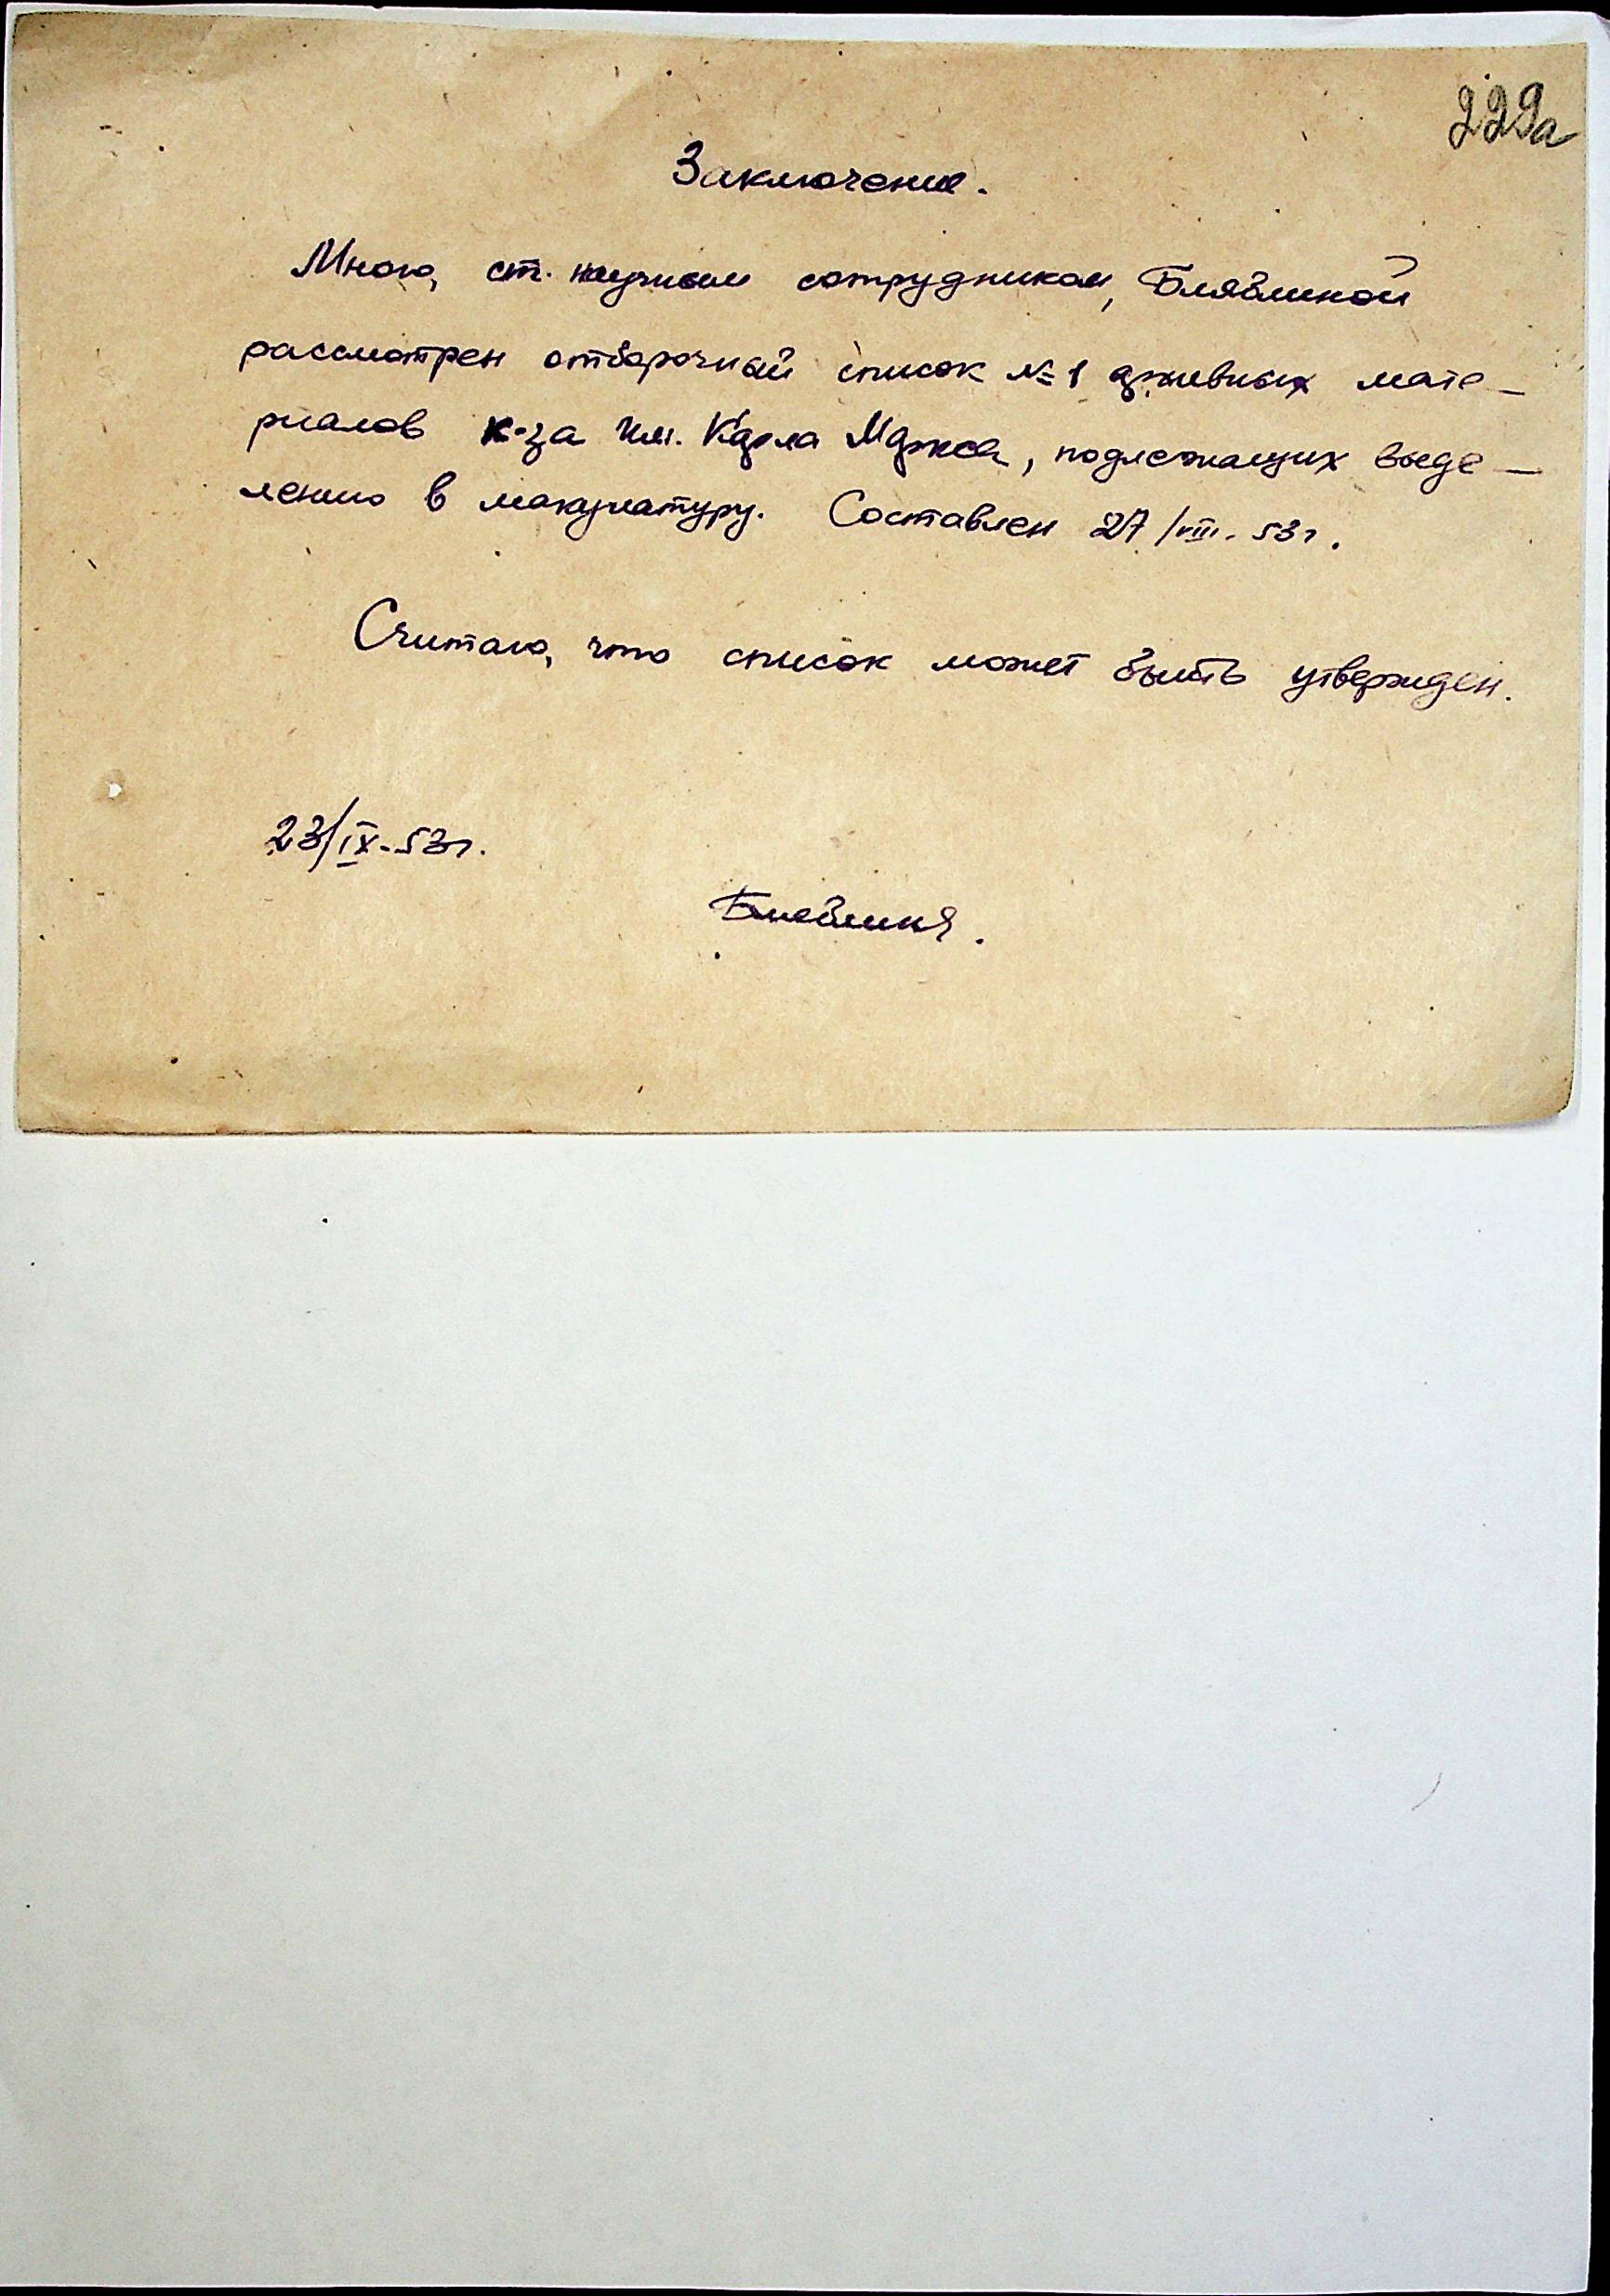 229а
Заключение.
Мною, ст. научным сотрудником, Блявлиной
рассмотрен отборочный список № 1 архивных мате-
риалов к-за им. Карла Маркса, подлежащих выде-
лению в макулатуру. Составлен 27/VIII-53г.
Считаю, что список может быть утвержден.
23/IX-53г.